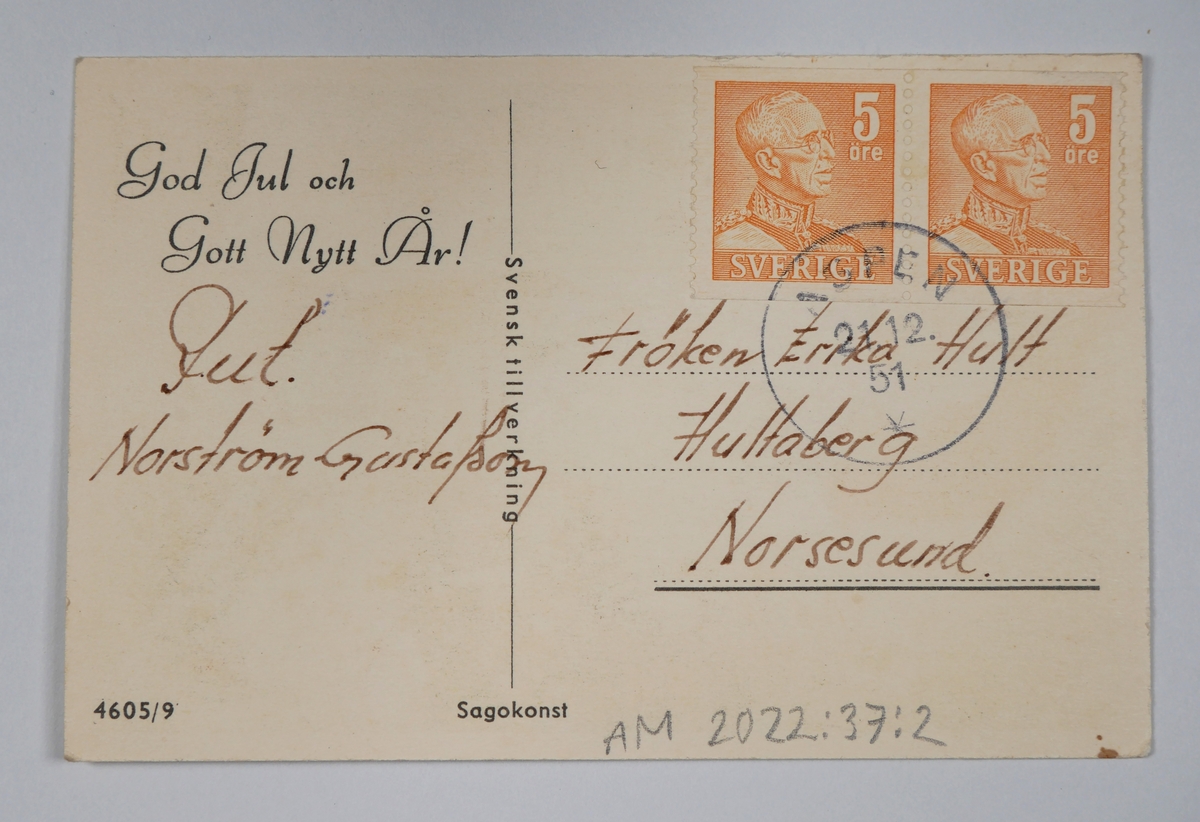 God Jul och
Gott Nytt År!
Rut.
Norström Gustafson
Svensk tillverkning
4605/9
Sagokonst
5
öre
SVERIGE
5
öre
SVERIGE
ASPEN
21.12.
51
Fröken Erika Hult
Hultaberg
Norsesund.
AM 2022:37:2